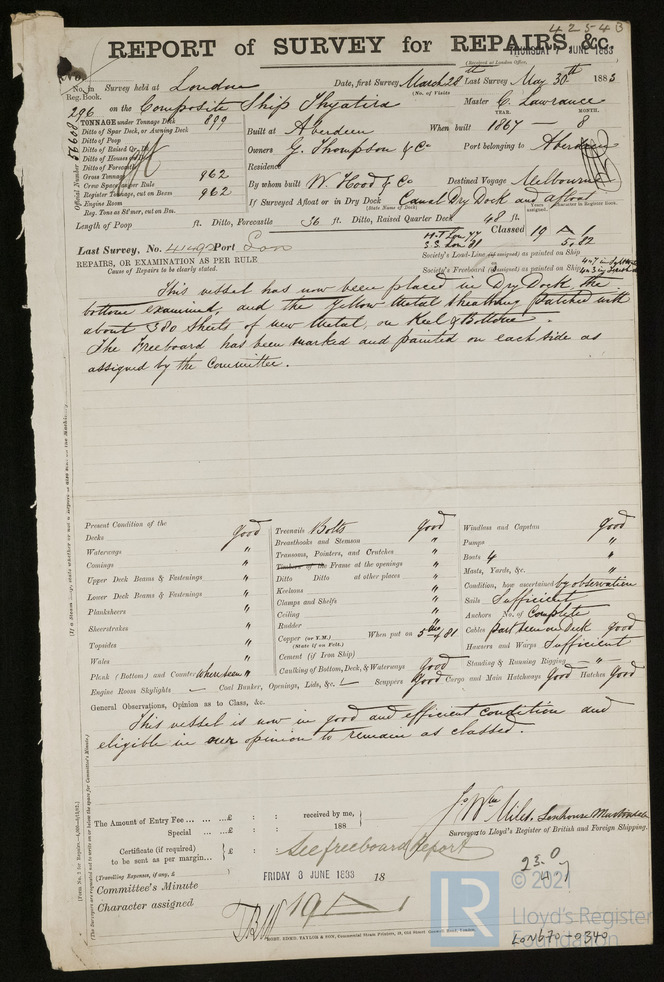 42543
REPORT of SURVEY for REPAIRS, &c.
THURSDAY 7 JUNE 1883
(Received at London Office,
No. in Survey held at London Date, first Survey March 28th Last Survey May 30th 1883
Reg. Book. (No. of Visits
296 on the Composite Ship Thyatira Master C. Lawrance
YEAR. MONTH.
TONNAGE under Tonnage Deck 899 Built at Aberdeen When built 1867 — 8
Ditto of Spar Deck, or Awning Deck
Ditto of Poop
Ditto of Raised Qr. Dk.
Ditto of Houses on Dk.
Ditto of Forecastle
Gross Tonnage 962
Crew Space as per Rule
Register Tonnage, cut on Beam 962
Engine Room
Reg. Tons as St'mer, cut on Bm.
Official Number 56608
Owners G. Thompson & Co Port belonging to Aberdeen
Residence
By whom built W. Hood & Co Destined Voyage Melbourne
If Surveyed Afloat or in Dry Dock Canal Dry Dock and afloat
(State Name of Dock)
Years assigned. Character in Register Book.
Length of Poop ft. Ditto, Forecastle 36 ft. Ditto, Raised Quarter Deck 48 ft.
Classed 19 A 1
5.82
H.T Lon 77
S.S. Lon 81
Last Survey, No. 41492 Port Lon
Society's Load-Line (if assigned) as painted on Ship
Society's Freeboard (if assigned) as painted on Ship
REPAIRS, OR EXAMINATION AS PER RULE
Cause of Repairs to be clearly stated.
This vessel has now been placed in Dry Dock, the
bottom examined, and the Yellow Metal sheathing patched with
about 380 sheets of new metal, on Keel & Bottom.
The Freeboard has been marked and painted on each side as
assigned by the Committee.
Present Condition of the
Decks good
Waterways "
Comings "
Upper Deck Beams & Fastenings "
Lower Deck Beams & Fastenings "
Planksheers "
Sheerstrakes "
Topsides "
Wales "
Plank (Bottom) and Counter where seen "
Engine Room Skylights — Coal Bunker, Openings, Lids, &c. — Scuppers Good Cargo and Main Hatchways Good Hatches Good
Treenails Bolts Good
Breasthooks and Stemson "
Transoms, Pointers, and Crutches "
Timbers of the Frame at the openings "
Ditto Ditto at other places "
Keelsons "
Clamps and Shelfs "
Ceiling "
Rudder "
Copper (or Y.M.) When put on
(State if on Felt.)
Cement (if Iron Ship)
Caulking of Bottom, Deck, & Waterways Good
Windlass and Capstan Good
Pumps "
Boats 4 "
Masts, Yards, &c. "
Condition, how ascertained by observation
Sails Sufficient
Anchors No. of Complete
Cables part seen on deck good
Hawsers and Warps Sufficient
Standing & Running Rigging "
General Observations, Opinion as to Class, &c.
This vessel is now in good and efficient condition and
eligible in our opinion to remain as classed.
Surveyors to Lloyd's Register of British and Foreign Shipping.
The Amount of Entry Fee ... ...£ : : received by me,
Special ... ...£ : : 188
Certificate (if required) to be sent as per margin... £ : :
See freeboard Report
(Travelling Expenses, if any, £ )
Committee's Minute FRIDAY 8 JUNE 1883 18
Character assigned 19 A 1
23.0
4.7
ROBT. EDMD. TAYLOR & SON,
© 2021
LR
Lloyd's Register
Foundation
LON670-0340